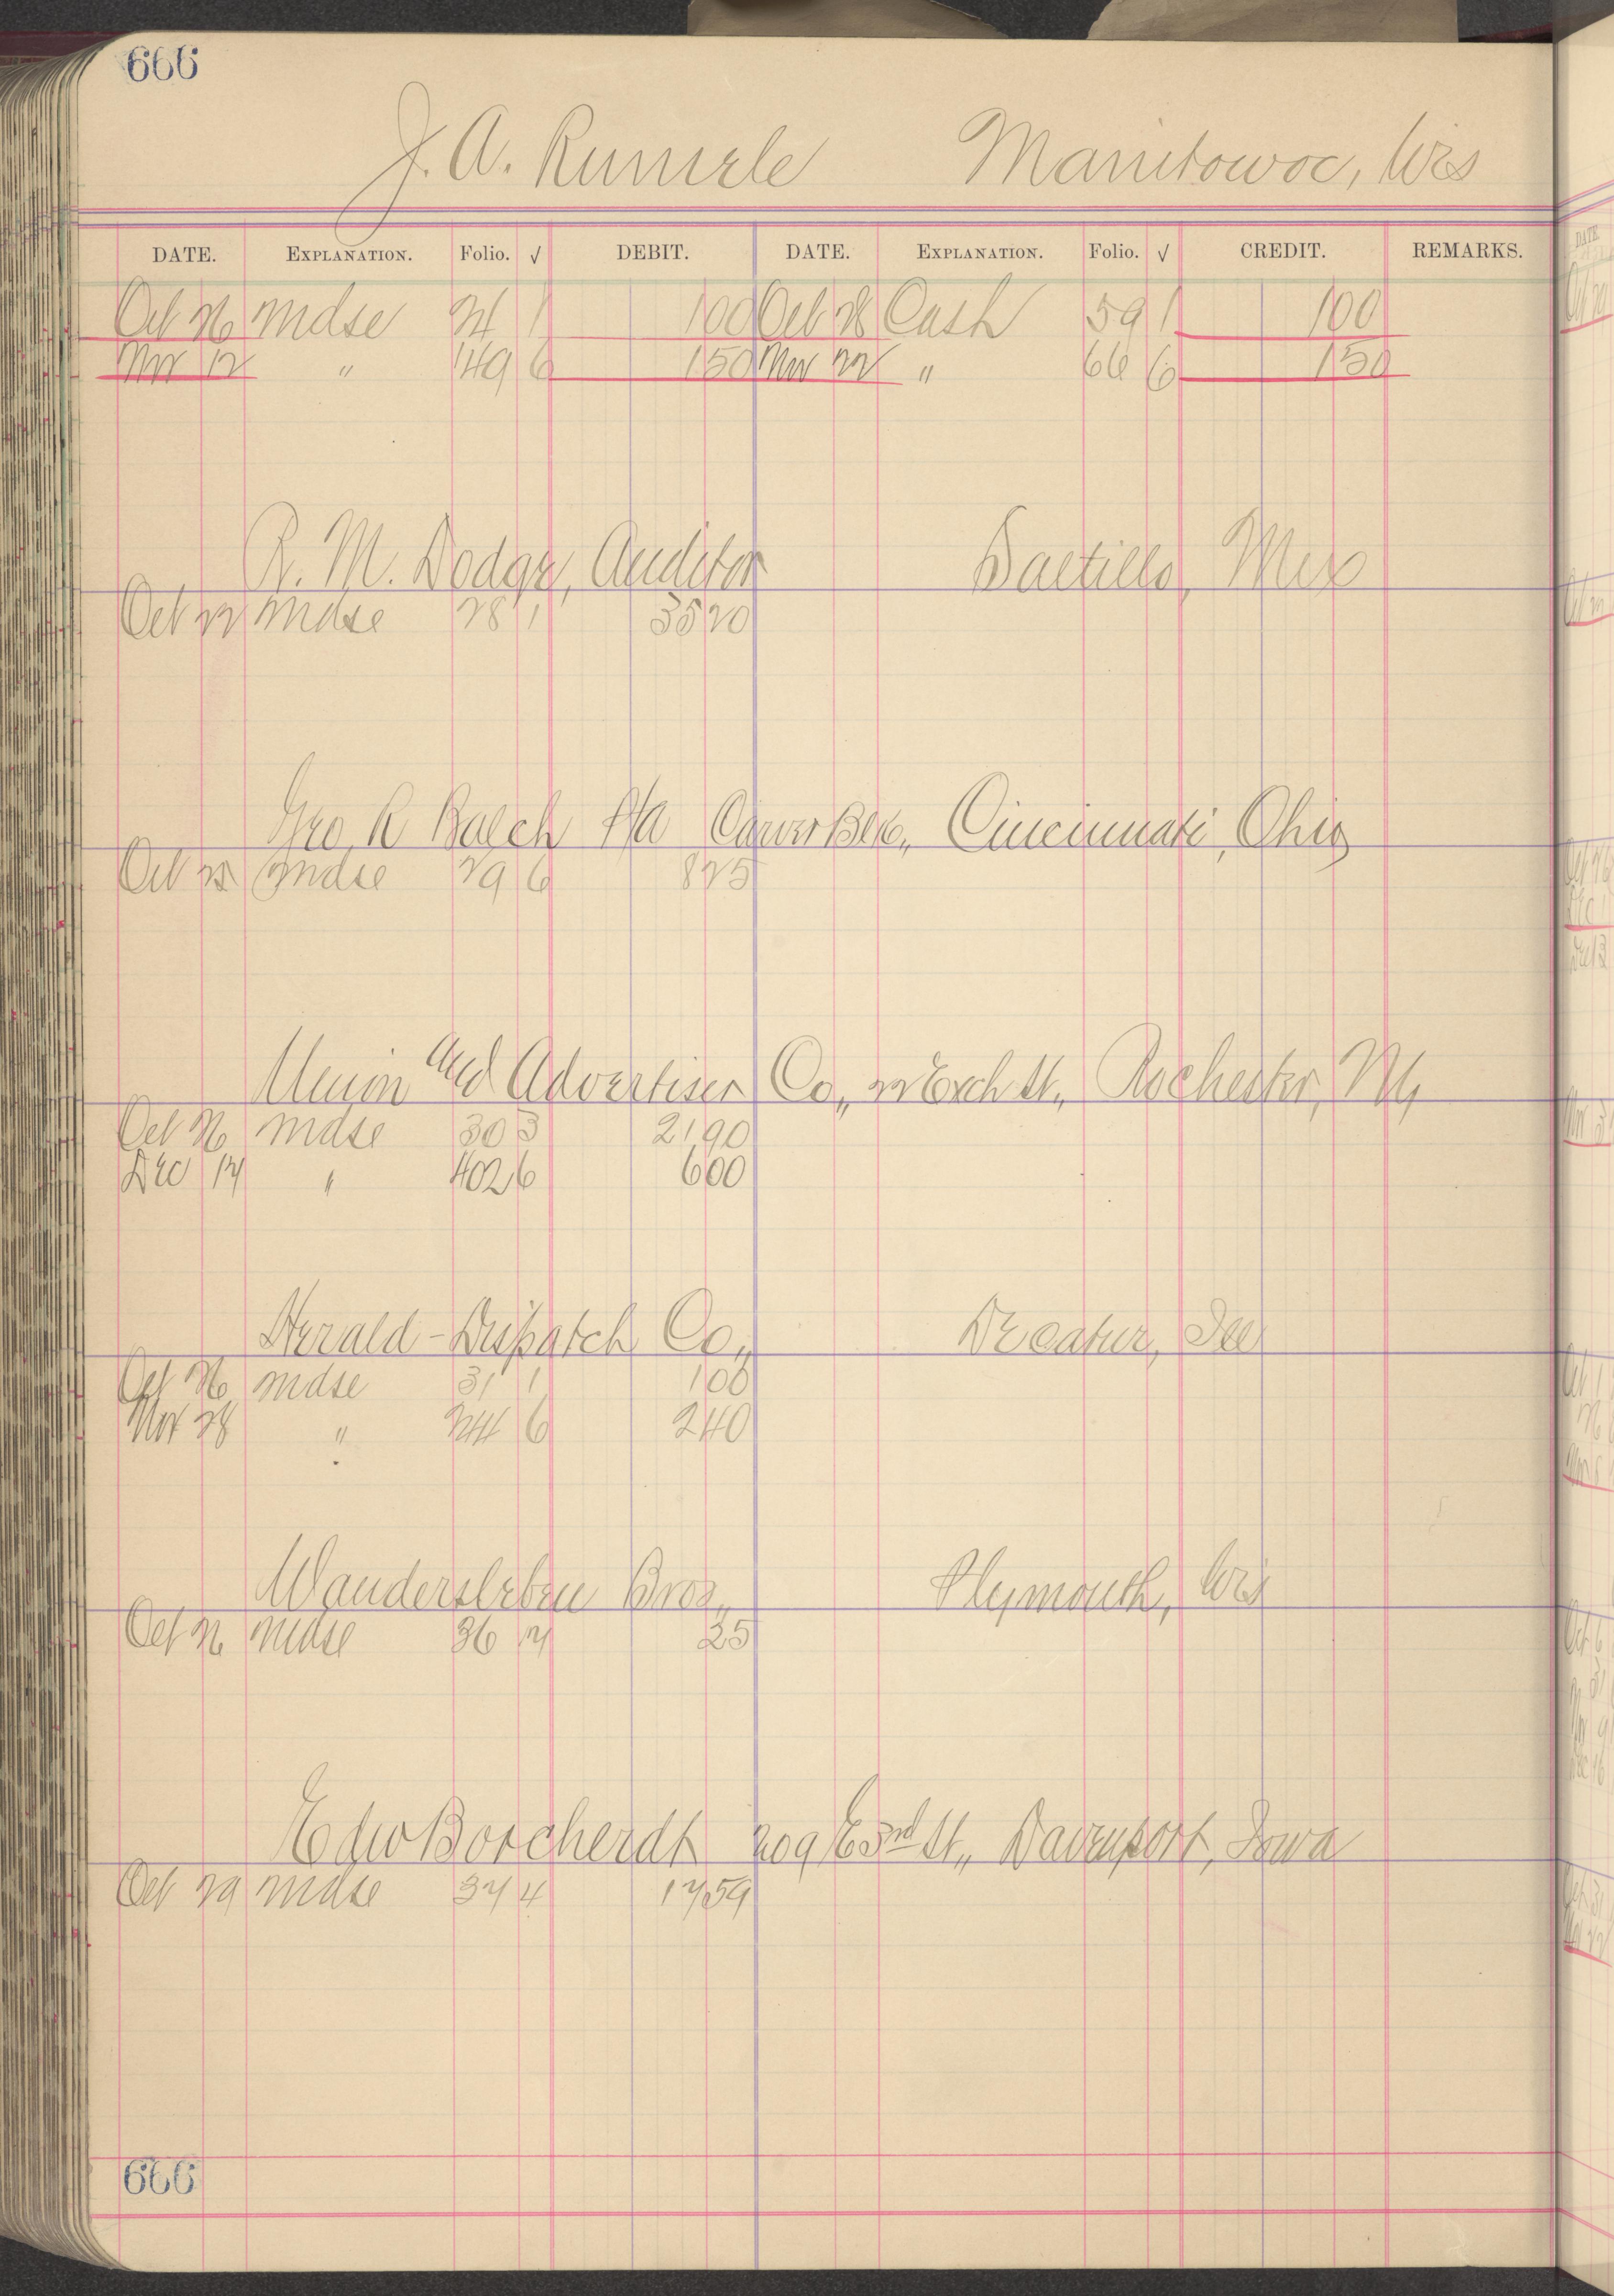 666
J. A. Rumele Manitowoc, Wis
DATE. EXPLANATION. Folio. √ DEBIT. DATE. EXPLANATION. Folio. √ CREDIT. REMARKS.
Oct 26 Mdse 24 1 100 Oct 28 Cash 59 1 100
Nov 12 " 149 6 150 Nov 22 " 66 6 150
R. M. Dodge, Auditor Saltillo, Mex
Oct 22 Mdse 28 1 3520
Geo. R Balch P/a Carver Blk., Cincinnati, Ohio
Oct 25 Mdse 29 6 825
Union and Advertiser Co., 22 Exch St., Rochester, NY
Oct 26 Mdse 30 3 2190
Dec 14 " 402 6 600
Herald-Dispatch Co., Decatur, Ill
Oct 26 Mdse 31 1 100
Nov 28 " 244 6 240
Wandersleben Bros., Plymouth, Wis
Oct 26 Mdse 36 7 25
Edw Borcherdt 209 E 3rd St., Davenport, Iowa
Oct 29 Mdse 37 4 1759
666